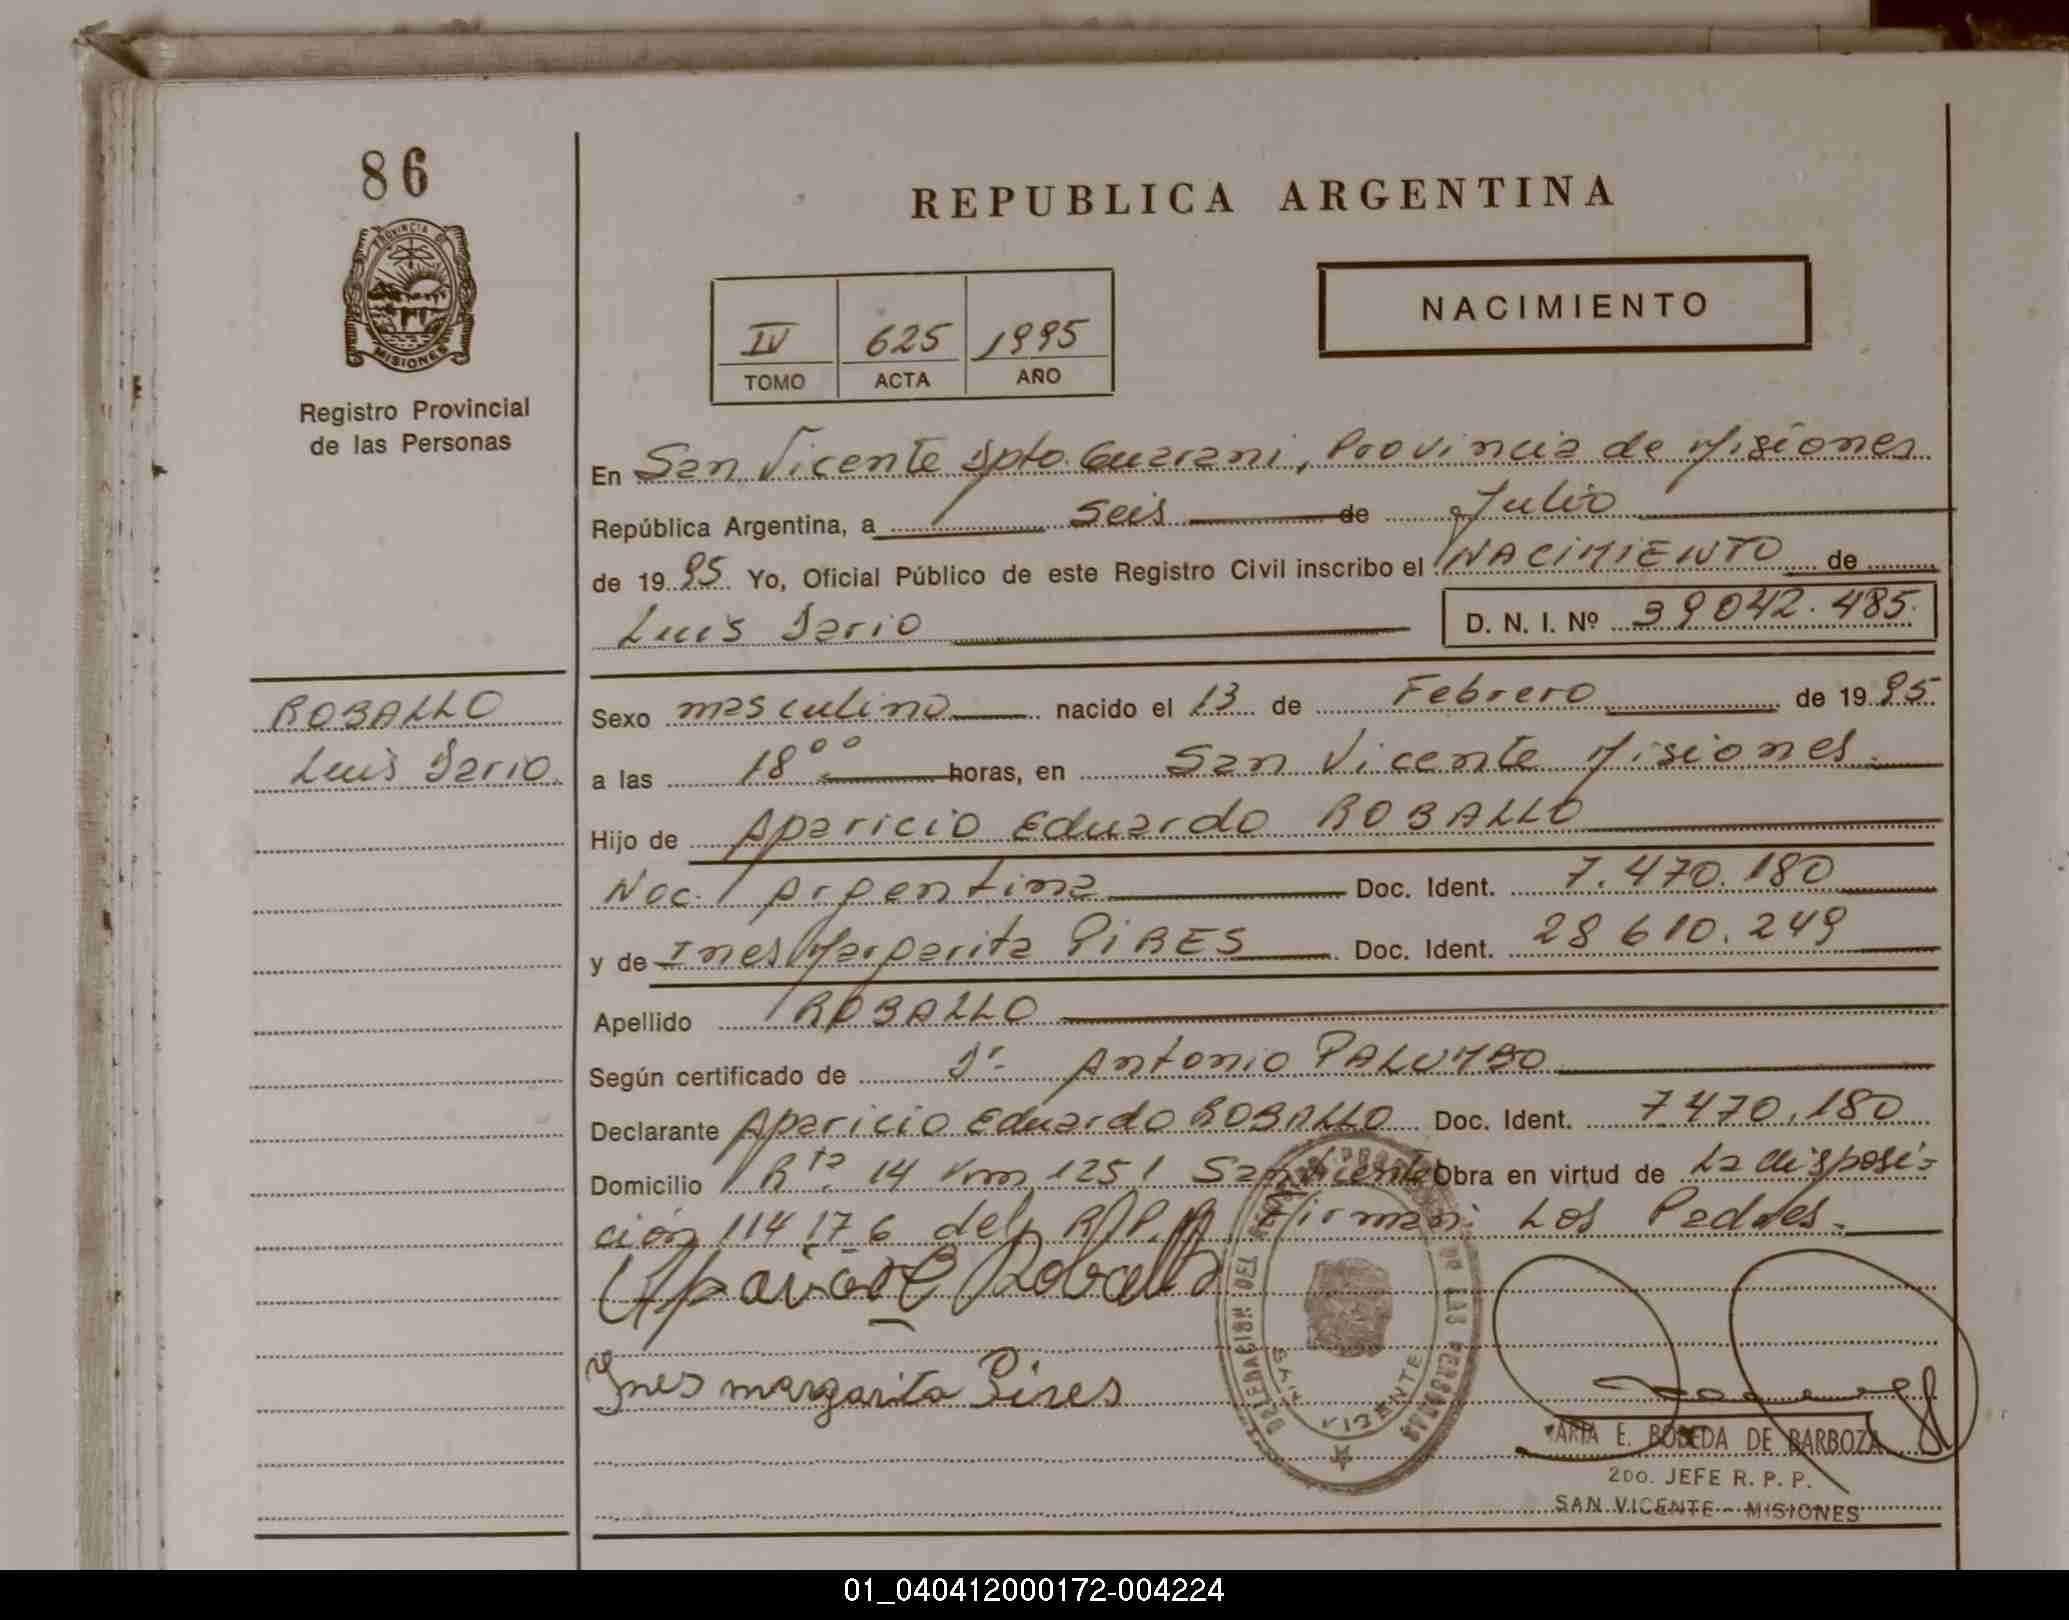 86
PROVINCIA DE
MISIONES
Registro Provincial
de las Personas
REPUBLICA ARGENTINA
NACIMIENTO
IV 625 1995
TOMO ACTA AÑO
En San Vicente Dpto. Guarani, Provincia de Misiones
República Argentina, a seis de Julio
de 1995 Yo, Oficial Público de este Registro Civil inscribo el NACIMIENTO de
Luis Dario D. N. I. Nº 39042.485.
ROBALLO
Luis Dario.
Sexo masculino nacido el 13 de Febrero de 1995.
a las 18⁰⁰ horas, en San Vicente Misiones.
Hijo de Aparicio Eduardo ROBALLO
Nac. Argentina Doc. Ident. 7.470.180
y de Ines Margarita PIRES Doc. Ident. 28610.249
Apellido ROBALLO
Según certificado de Dr. Antonio PALUMBO
Declarante Aparicio Eduardo ROBALLO Doc. Ident. 7470.180
Domicilio Rta. 14 Km 1251 San Vicente Obra en virtud de La disposi-
ción 114 17-6 del R.P.P. Firman: Los Padres.
Roballo
Ynes margarita Pires
DELEGACION DEL REGISTRO PROVINCIAL DE LAS PERSONAS
SAN VICENTE
MARIA E. BOBEDA DE BARBOZA
2DO. JEFE R. P. P.
SAN VICENTE - MISIONES
01_040412000172-004224